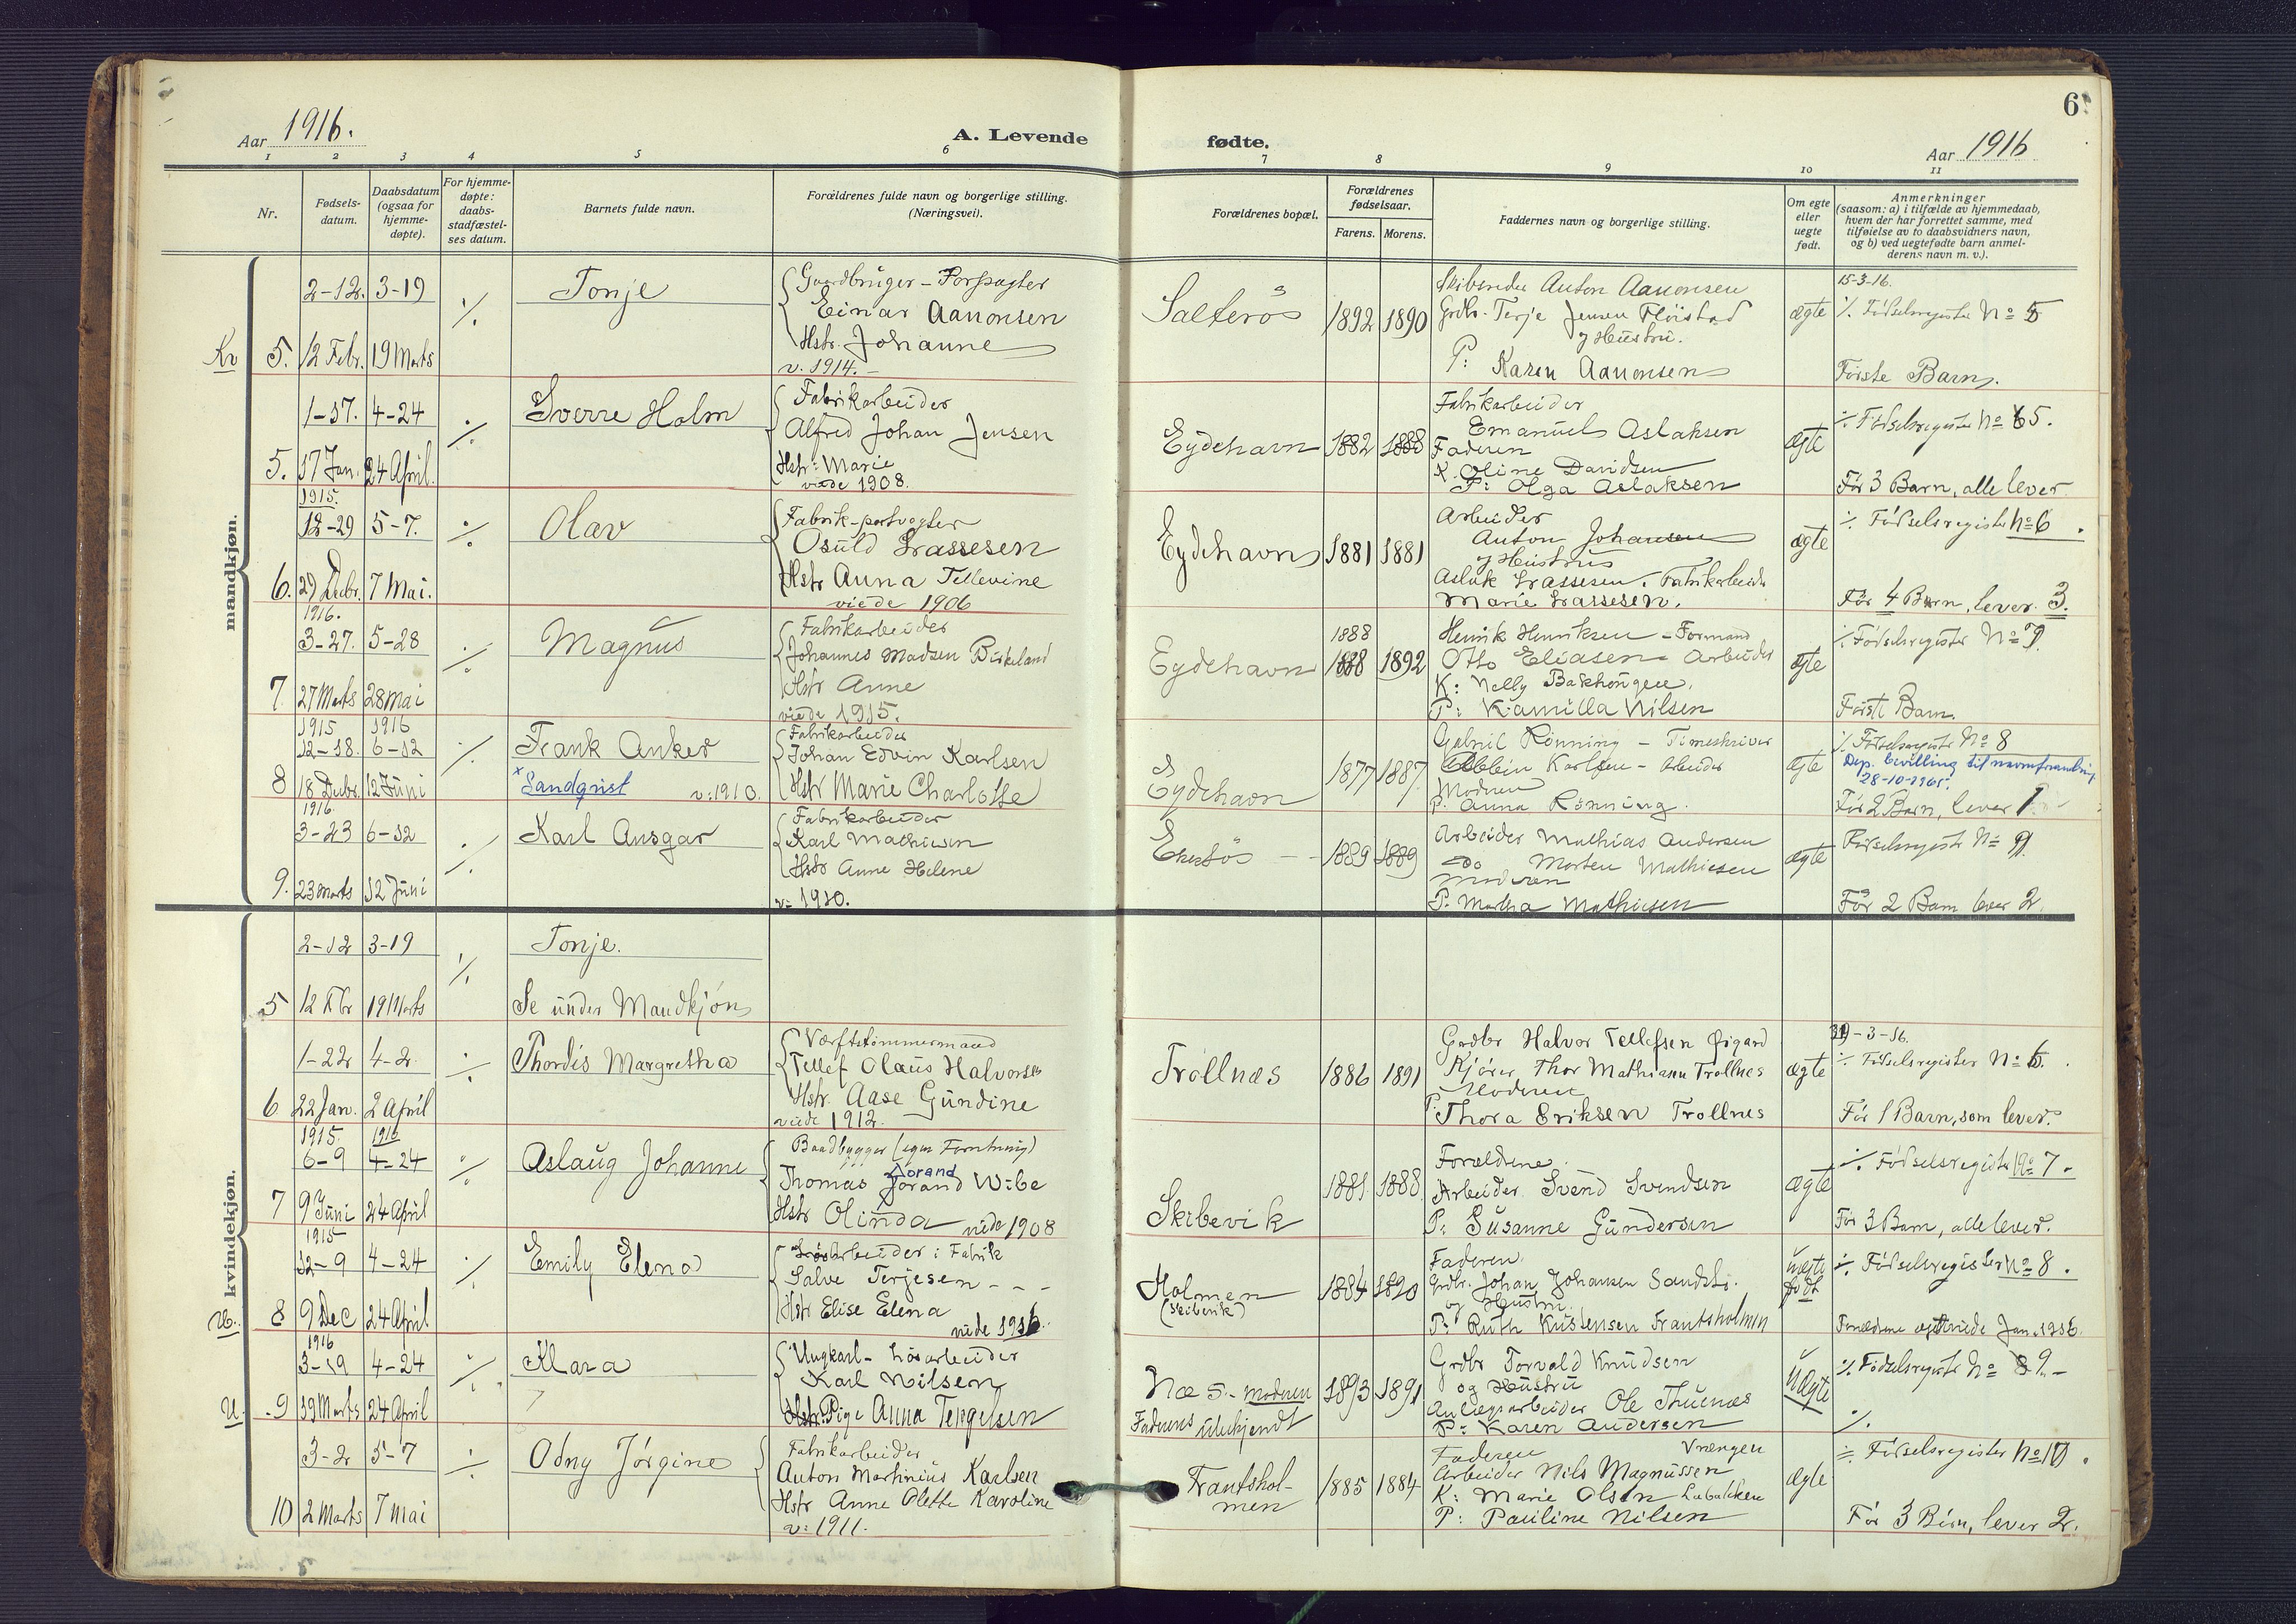 Aar 1916.
A. Levende
fødte.
6
Aar 1916
1 2 3 4 5 6 7 8 9 10 11
Nr.
Fødsels-
datum.
Daabsdatum
(ogsaa for
hjemme-
døpte).
For hjemme-
døpte:
daabs-
stadfæstel-
ses datum.
Barnets fulde navn.
Forældrenes fulde navn og borgerlige stilling.
(Næringsvei).
Forældrenes bopæl.
Forældrenes
fødselsaar.
Farens. Morens.
Faddernes navn og borgerlige stilling.
Om egte
eller
uegte
født.
Anmerkninger
(saasom: a) i tilfælde av hjemmedaab,
hvem der har forrettet samme, med
tilføielse av to daabsvidners navn,
og b) ved uegtefødte barn anmel-
derens navn m. v.).
mandkjøn.
Kv 5.
2-12. 3-19
12 Febr. 19 Marts
Tonje
Gaardbruger - Forpagter
Einar Aanonsen
Hstr. Johanne
v. 1914.
Salterös
1892 1890
Skibsreder Anton Aanonsen
Grdbr. Terje Jensen Flöistad
og Hustru.
P: Karen Aanonsen
ægte
15-3-16.
% Födselsregister No 5
Förste Barn.
5.
1-17. 4-24
17 Jan. 24 April.
Sverre Holm
Fabrikarbeider
Alfred Johan Jensen
Hstr: Marie
viede 1908.
Eydehavn
1882 1888
Fabrikarbeider
Emanuel Aslaksen
Faderen
K. Oline Davidsen
P: Olga Aslaksen
ægte
% Födselsregister No 5.
För 3 Barn, alle lever
6.
1915.
12-29 5-7.
29 Decbr. 7 Mai.
Olav
Fabrik-portvogter
Osuld Lassesen
Hstr Anna Tellevine
viede 1906
Eydehavn
1881 1881
Arbeider
Anton Johansen
og Hustru
Aslak Lassesen. Fabrikarbeider
Marie Lassesen.
ægte
% Födselsregister No 6.
För 4 Barn, lever 3.
7.
1916.
3-27. 5-28
27 Marts 28 Mai
Magnus
Fabrikarbeider
Johannes Madsen Birkeland
Hstr Anne
viede 1915.
Eydehavn
1888
1888 1892
Henrik Henriksen - Formand
Otto Eliasen - Arbeider
K: Nelly Bakhougen.
P: Kamilla Nilsen
ægte
% Födselsregister No 7.
Förste Barn.
8
1915 1916
12-18. 6-12
18 Decbr. 12 Juni
Frank Anker
* Sandqvist v: 1910.
Fabrikarbeider
Johan Edvin Karlsen
Hstr Marie Charlotte
Eydehavn
1877 1887
Gabriel Rönning - Timeskriver
Karlsen - Arbeider
Moderen
P. Anna Rönning.
ægte
% Födselsregister No 8
Dep. bevilling til navneforandring
28-10-1965.
För 2 Barn, lever 1
9.
1916
3-23 6-12
23 Marts 12 Juni
Karl Ansgar
Fabrikarbeider
Karl Mathiesen
Hstr Anne Helene
v: 1910.
1889 1889
Arbeider Mathias Andersen
do Morten Mathiesen
Moderen
P. Martha Mathiesen
ægte
Födselsregister No 9.
För 2 Barn lever 2.
kvindekjøn.
5
2-12 3-19
12 Fbr 19 Marts
Tonje.
Se under Mandkjön
6
1-22 4-2.
22 Jan. 2 April
Thordis Margretha
Værftstömmermand
Tellef Olaus Halvorsen
Hstr. Aase Gundine
viede 1912.
Trollnæs
1886 1891
Grdbr Halvor Tellefsen Øigard
Kjörer Thor Mathiann Trollnes
Moderen
P: Thora Eriksen Trollnes
ægte
- 3 - 16.
% Födselsregister No 6.
För 1 Barn, som lever.
7
1915. 1916
6-9 4-24
9 Juni 24 April
Aslaug Johanne
Baadbygger (egen Forretning)
Jorand
Thomas Jörand Wibe
Hstr Olinda viede 1908
Skibevik
1881. 1888
Forældrene
Arbeider Svend Svendsen
P: Susanne Gundersen
ægte
% Födselsregister No 7.
För 3 Barn, alle lever.
U. 8
1915
12-9 4-24
9 Dec 24 April
Emily Elena
Lösarbeider i Fabrik
Salve Terjesen - - -
Hstr Elise Elena
viede 1916.
Holmen
(Skibevik)
1884 1890
Faderen.
Grdbr. Johan Johansen
og Hustru.
P: Ruth Kristensen Frantsholmen
uægte
födt
% Födselsregister No 8.
Forældrene viede Jan. 1916.
U. 9
1916
3-19 4-24
19 Marts 24 April
Klara
Ungkarl - Lösarbeider
Karl Nilsen
Hstr. Pige Anna Tengelsen
Næs - Moderen
Faderens ubekjendt
1893 1891
Grdbr Torvald Knudsen
og Hustru
Anlægsarbeider Ole Thuenæs
P: Karen Andersen
Uægte
% Födselsregister No 9.
%
10
3-2 5-7
2 Marts 7 Mai
Odny Jörgine
Fabrikarbeider
Anton Martinius Karlsen
Hstr Anne Olette Karoline
v: 1911.
Frantshol-
men
1885 1884
Faderen Vrængen
Arbeider Nils Magnussen
K: Marie Olsen
P: Pauline Nilsen
ægte
% Födselsregister No 10.
För 3 Börn, lever 2.